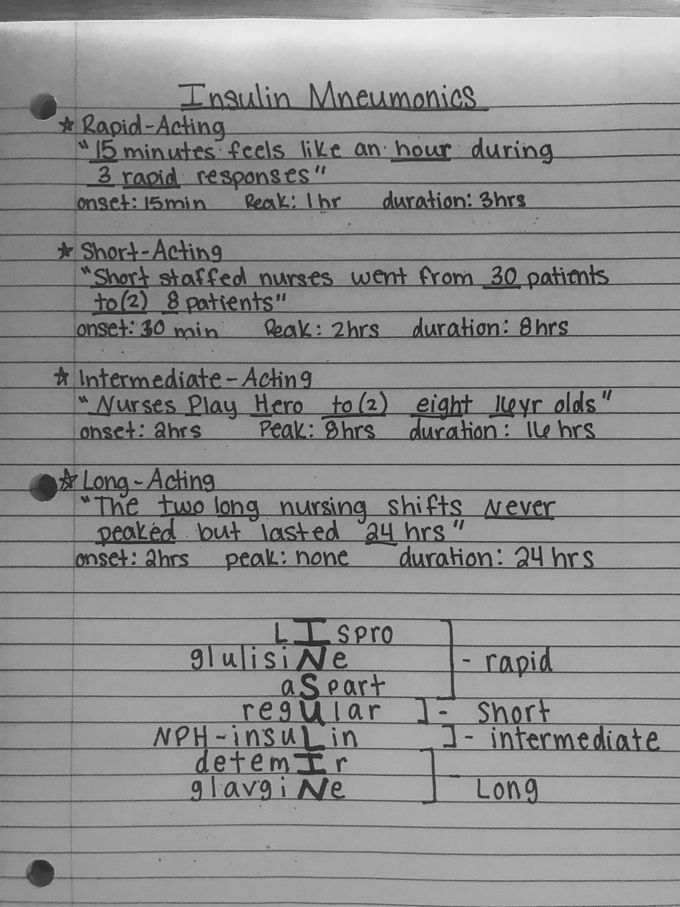 Insulin Mneumonics
☆ Rapid-Acting
"15 minutes feels like an hour during
3 rapid responses"
onset: 15min Peak: 1hr duration: 3hrs
☆ Short-Acting
"Short staffed nurses went from 30 patients
to(2) 8 patients"
onset: 30 min Peak: 2hrs duration: 8hrs
☆ Intermediate-Acting
"Nurses Play Hero to(2) eight 16yr olds"
onset: 2hrs Peak: 8hrs duration: 16 hrs
☆ Long-Acting
"The two long nursing shifts never
peaked but lasted 24 hrs"
onset: 2hrs peak: none duration: 24 hrs
LIspro
glulisiNe ] - rapid
aSpart
regUlar ] - Short
NPH-insuLin ] - intermediate
detemIr
glavgiNe ] - Long